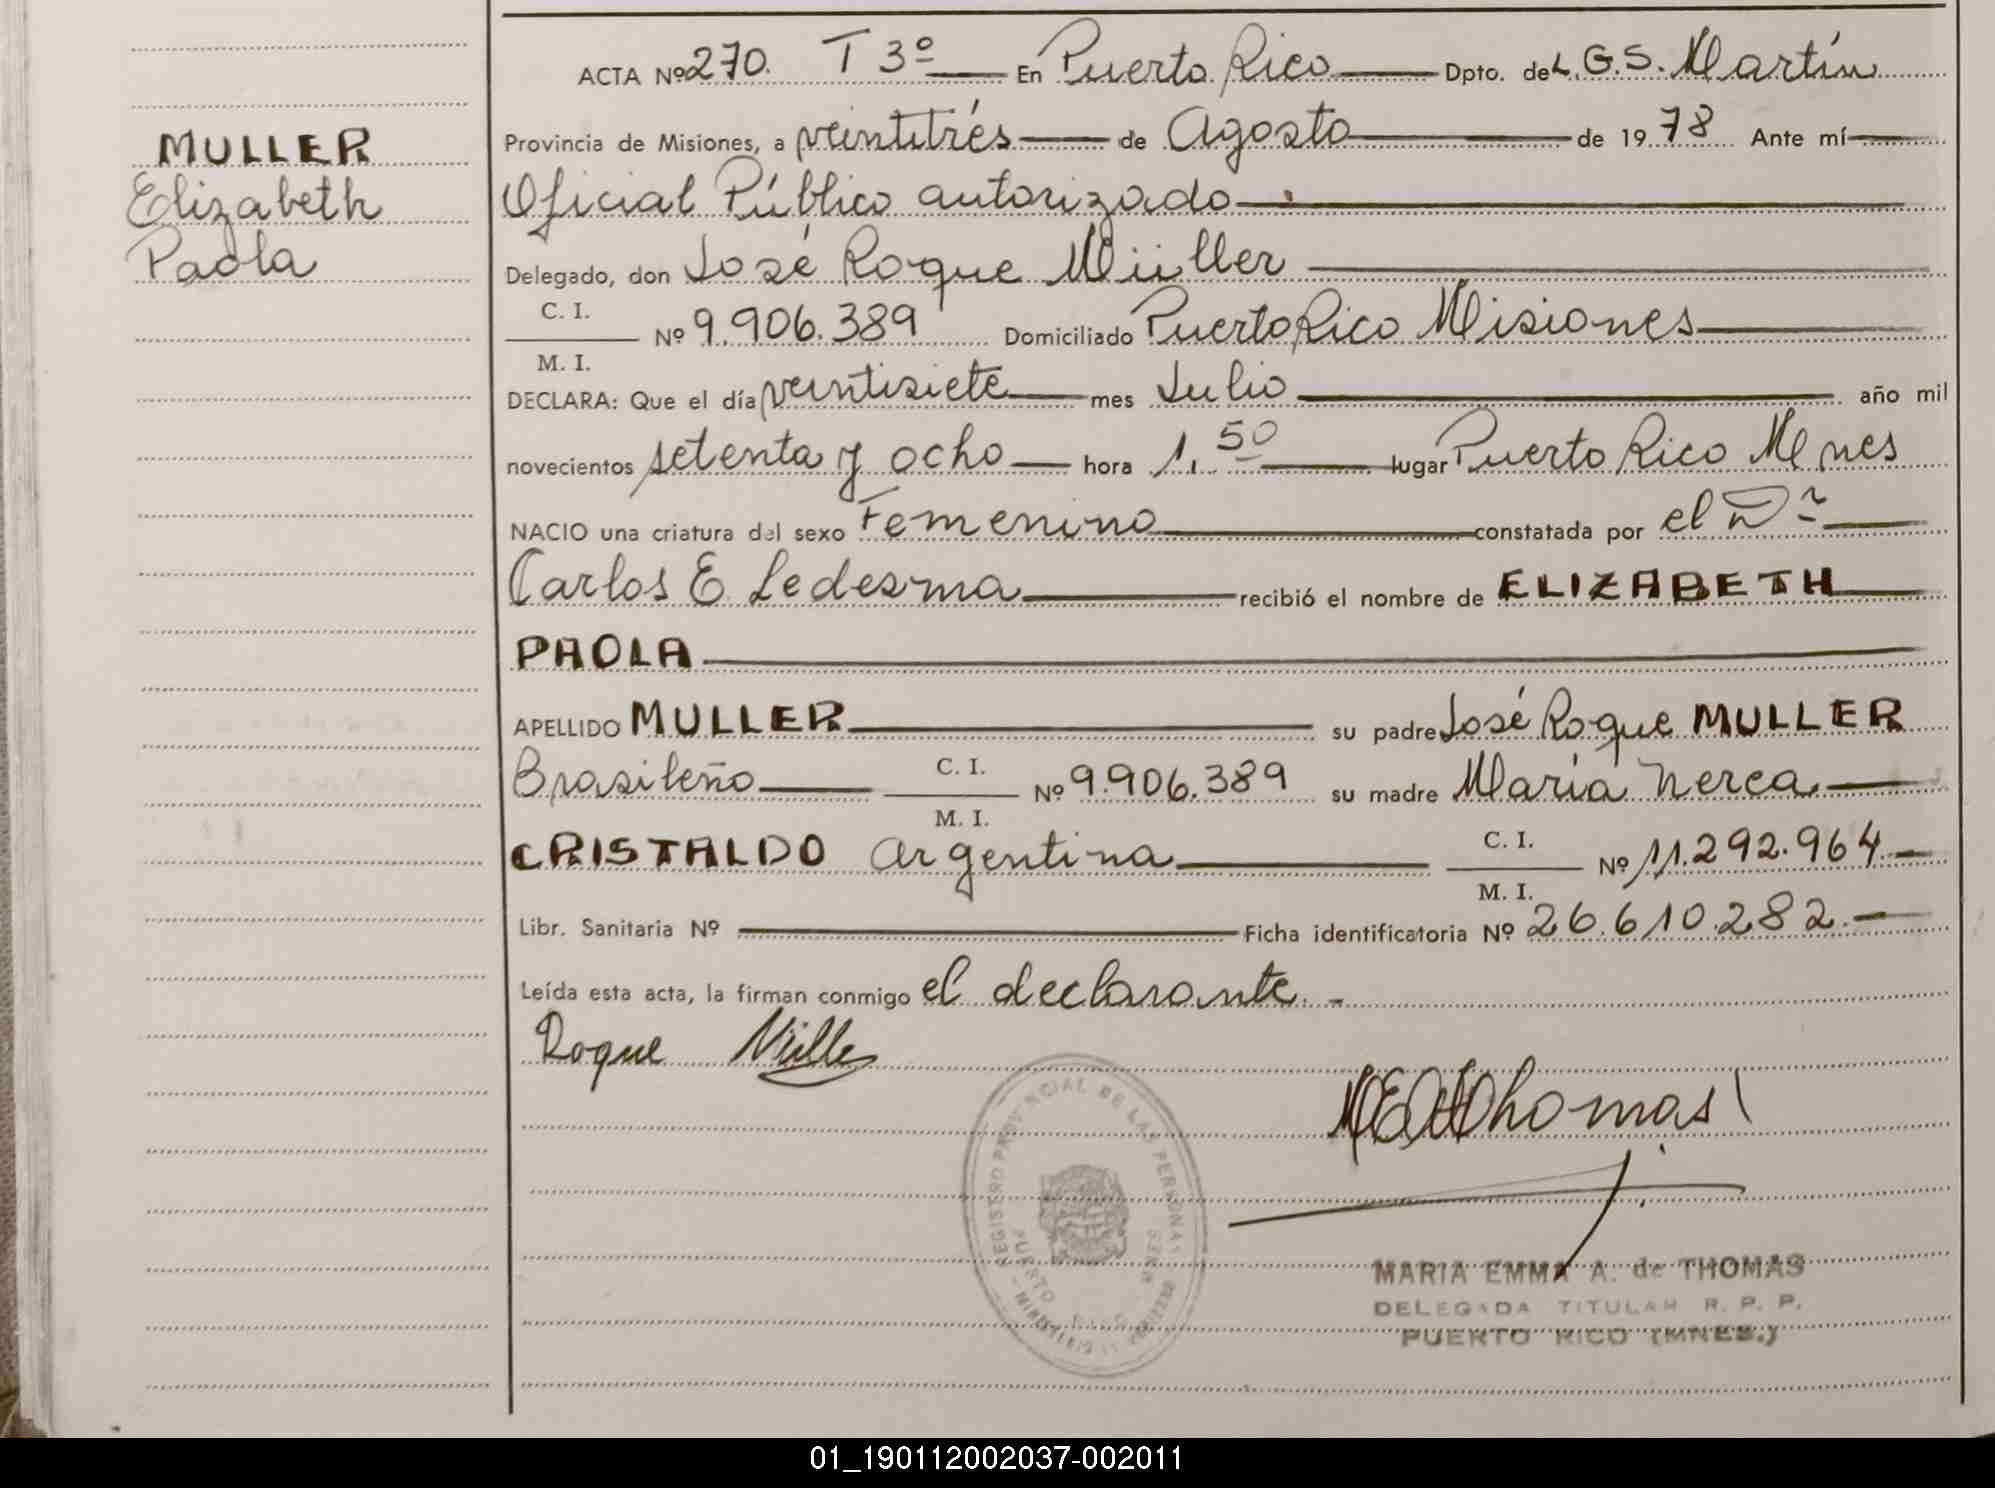 MULLER
Elizabeth
Paola
ACTA Nº 270. T 3º En Puerto Rico Dpto. deL. G. S. Martín
Provincia de Misiones, a veintitrés de Agosto de 1978 Ante mí
Oficial Público autorizado
Delegado, don José Roque Müller
C. I.
M. I.
Nº 9.906.389 Domiciliado Puerto Rico Misiones
DECLARA: Que el día veintisiete mes Julio año mil
novecientos setenta y ocho hora 1,50 lugar Puerto Rico Mnes
NACIO una criatura del sexo Femenino constatada por el Dr
Carlos E. Ledesma recibió el nombre de ELIZABETH
PAOLA
APELLIDO MULLER su padre José Roque MULLER
Brasileño C. I. M. I. Nº 9.906.389 su madre María Nerea
CRISTALDO Argentina C. I. M. I. Nº 11.292.964.
Libr. Sanitaria Nº Ficha identificatoria Nº 26.610.282.
Leída esta acta, la firman conmigo el declarante. -
Roque Müller
REGISTRO PROVINCIAL DE LAS PERSONAS
PUERTO RICO
MARIA EMMA A. de THOMAS
DELEGADA TITULAR R. P. P.
PUERTO RICO (MNES.)
01_190112002037-002011